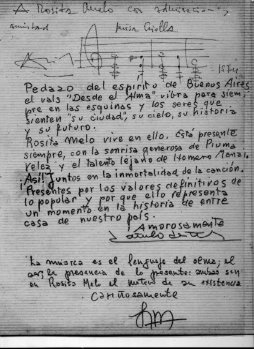 A Rosita Melo con admiración y
amistad
1974
Pedazo del espíritu de Buenos Aires
el vals "Desde el Alma" vibra para siem
pre en las esquinas y los seres que
sienten "su ciudad", su cielo, su historia
y su futuro.
Rosita Melo vive en ello. Está presente
siempre, con la sonrisa generosa de Piuma
Velez y el talento lejano de Homero Manzi,
¡Así! Juntos en la inmortalidad de la canción.
Presentes por los valores definitivos de
lo popular y por que ello representa
un momento en la historia de entre
casa de nuestro país.
Amorosamente
La música es el lenguaje del alma; el
la presencia de lo presente: ambas son
en Rosita Melo el motivo de su existencia
Cariñosamente